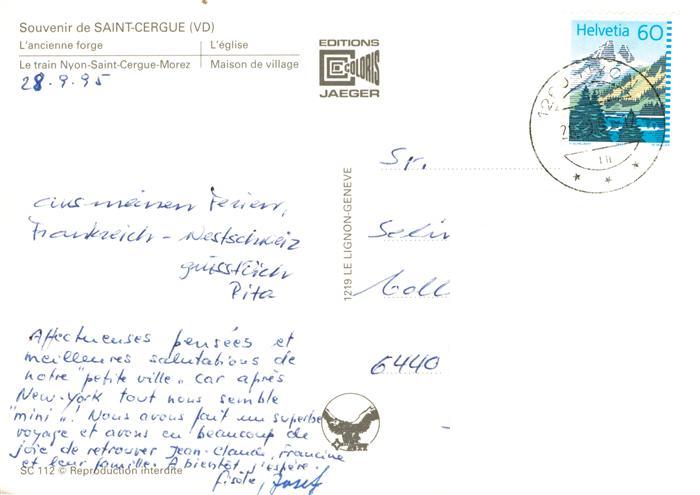 Souvenir de SAINT-CERGUE (VD)
L'ancienne forge
L'église
Le train Nyon-Saint-Cergue-Morez
Maison de village
28.9.95
EDITIONS
COLORIS
JAEGER
Helvetia 60
Sr.
aus meinen Ferien,
Frankreich - Westschweiz
grüsst Dich
Pita
1219 LE LIGNON-GENEVE
6440
Affectueuses pensées et
meilleures salutations de
notre "petite ville" car après
New-York tout nous semble
"mini"! Nous avons fait un superbe
voyage et avons eu beaucoup de
joie de retrouver Jean-Claude, Francine
et leur famille. A bientôt j'espère.
Josef
SC 112 © Reproduction interdite